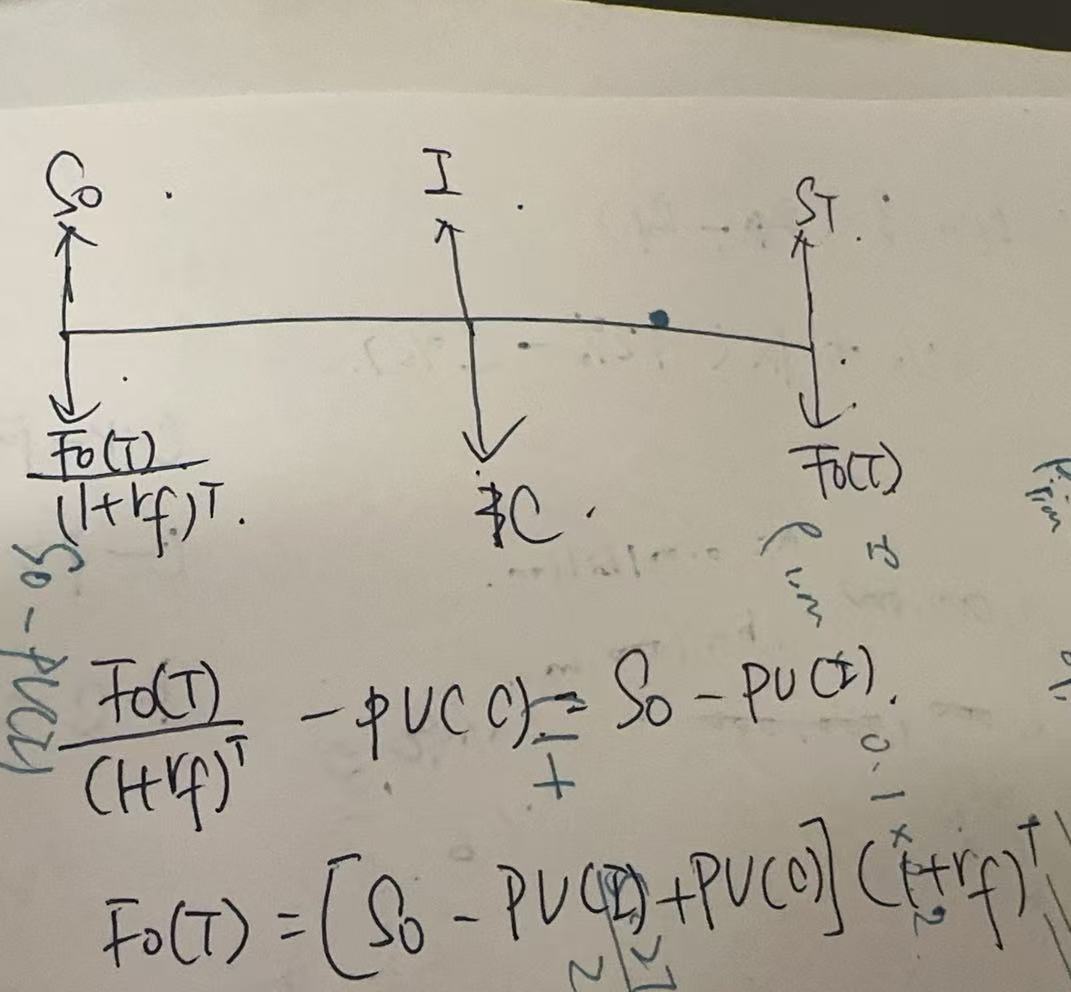 S0 I ST
F0(T)
(1+rf)^T
$C
F0(T)
S0 - PV(I)
F0(T)/(1+rf)^T - PV(C) = S0 - PV(I)
+
F0(T) = [S0 - PV(I) + PV(C)] (1+rf)^T